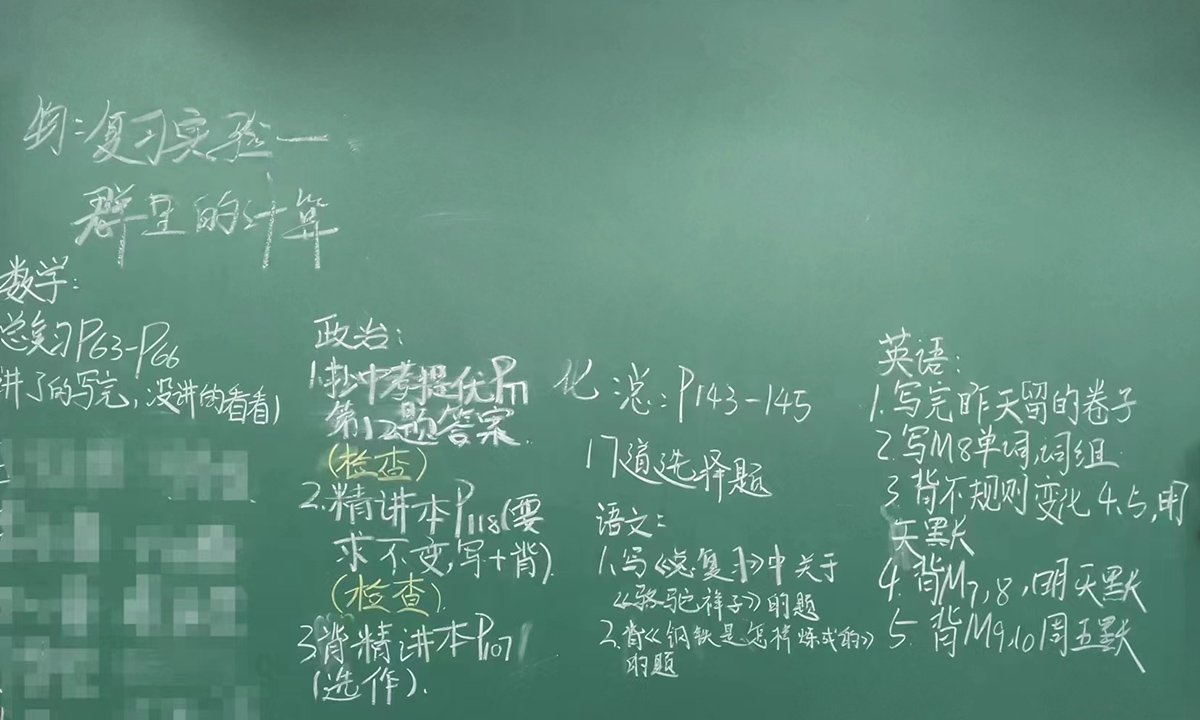 物:复习实验一
群里的计算
数学:
总复习P63-P66
讲了的写完,没讲的看看)
政治:
1.抄中考提优P
第12题答案.
(检查)
2.精讲本P118(要
求不变,写+背).
(检查).
3背精讲本P107
(选作).
化:总:P143-145
17道选择题
语文:
1.写《总复习》中关于
《骆驼祥子》的题
2.背《钢铁是怎样炼成的》
的题
英语:
1.写完昨天留的卷子
2.写M8单词,词组
3.背不规则变化4.5,明
天默
4.背M7,8,明天默
5.背M9.10周五默